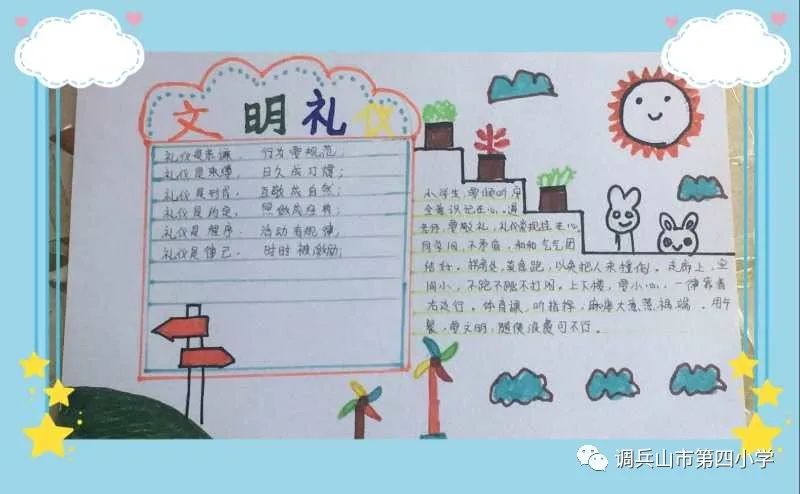 文明礼仪
礼仪是素课， 行为要规范；
礼仪是 日久成习惯；
礼仪是 互敬成自然；
礼仪是约定，
礼仪是程序， 活动有规律；
礼仪是 时时被激励；
小学生，要倾听
全常识记在心。遇
老师，要敬礼，礼仪常规挂在心。
同学间，不矛盾，和和气气团
结好。拐角处，莫急跑，以免把人来撞倒。走廊上，空
间小，不跑不跳不打闹。上下楼，要小心，一律靠着
右边行。体育课，听指挥，麻痹大意落祸端。用午
餐，要文明，随便浪费可不行。
调兵山市第四小学